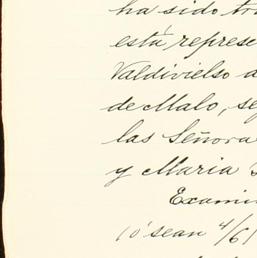 ha sido tra
está represe
Valdivielso a
de Malo, se
las Señora
y Maria
Examin
ó sean 4/61